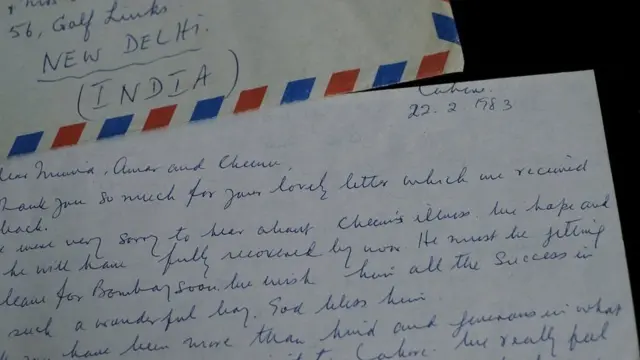 56, Golf Links.
NEW DELHI.
(INDIA)
Lahore.
22. 2 1983
Dear , Amar and Cheenu.
Thank you so much for your lovely letter which we received
back.
were very sorry to hear about Cheenu's illness. We hope and
he will have fully recovered by now He must be getting
leave for Bombay soon. We wish him all the success in
such a wonderful boy. God bless him.
have been more than kind and generous in what
Lahore. We really feel